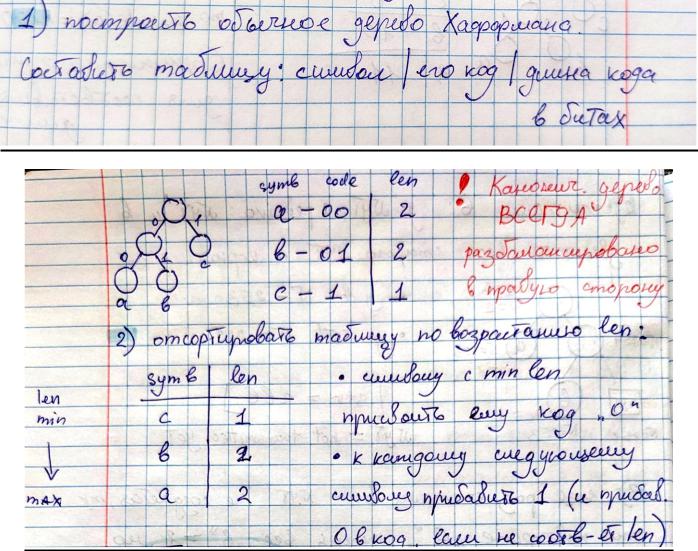 1) построить обычное дерево Хаффмана.
Составить таблицу: символ | его код | длина кода
в битах
symb code len
a - 00 2
b - 01 2
c - 1 1
0 1
0 1
c
a b
! Канонич. дерево
ВСЕГДА
разбалансировано
в правую сторону
2) отсортировать таблицу по возрастанию len:
symb len
c 1
b 2
a 2
len
min
max
• символу с min len
присвоить ему код "0"
• к каждому следующему
символу прибавить 1 (и прибав.
0 в код, если не соотв-ет len)